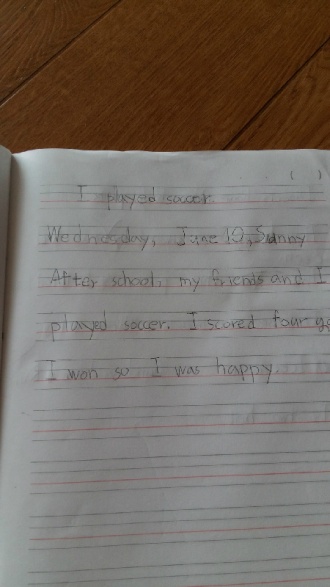 ( )
I played soccer.
Wednesday, June 10, Sunny
After school, my friends and I
played soccer. I scored four go
I won so I was happy.